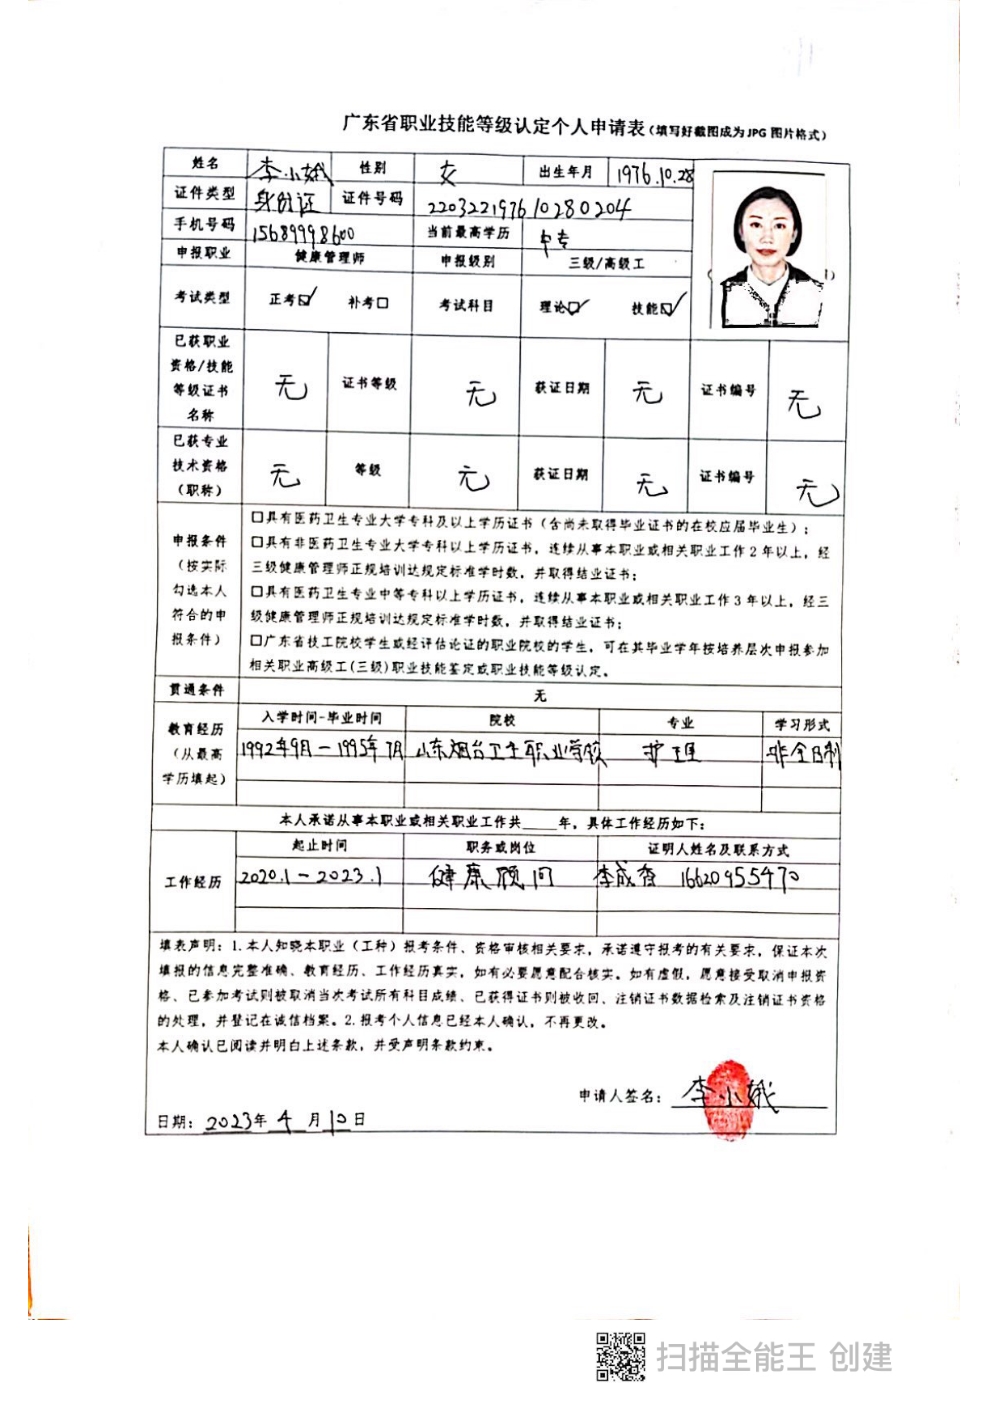 广东省职业技能等级认定个人申请表(填写好截图成为JPG图片格式)
姓名 李小娥 性别 女 出生年月 1976.10.28
证件类型 身份证 证件号码 220322197610280204
手机号码 15689998600 当前最高学历 中专
申报职业 健康管理师 申报级别 三级/高级工
考试类型 正考☑ 补考□ 考试科目 理论☑ 技能☑
已获职业
资格/技能
等级证书
名称
无 证书等级 无 获证日期 无 证书编号 无
已获专业
技术资格
(职称)
无 等级 无 获证日期 无 证书编号 无
申报条件
(按实际
勾选本人
符合的申
报条件)
□具有医药卫生专业大学专科及以上学历证书(含尚未取得毕业证书的在校应届毕业生);
□具有非医药卫生专业大学专科以上学历证书,连续从事本职业或相关职业工作2年以上,经
三级健康管理师正规培训达规定标准学时数,并取得结业证书;
□具有医药卫生专业中等专科以上学历证书,连续从事本职业或相关职业工作3年以上,经三
级健康管理师正规培训达规定标准学时数,并取得结业证书;
□广东省技工院校学生或经评估论证的职业院校的学生,可在其毕业学年按培养层次申报参加
相关职业高级工(三级)职业技能鉴定或职业技能等级认定。
贯通条件 无
教育经历
(从最高
学历填起)
入学时间-毕业时间 院校 专业 学习形式
1992年9月-1995年7月 山东烟台卫生职业学校 护理 非全日制
本人承诺从事本职业或相关职业工作共____年,具体工作经历如下:
工作经历
起止时间 职务或岗位 证明人姓名及联系方式
2020.1-2023.1 健康顾问 李成 16620955470
填表声明:1.本人知晓本职业(工种)报考条件、资格审核相关要求,承诺遵守报考的有关要求,保证本次
填报的信息完整准确、教育经历、工作经历真实,如有必要愿意配合核实。如有虚假,愿意接受取消申报资
格、已参加考试则被取消当次考试所有科目成绩、已获得证书则被收回、注销证书数据检索及注销证书资格
的处理,并登记在诚信档案。2.报考个人信息已经本人确认,不再更改。
本人确认已阅读并明白上述条款,并受声明条款约束。
申请人签名: 李小娥
日期: 2023年4月10日
扫描全能王 创建